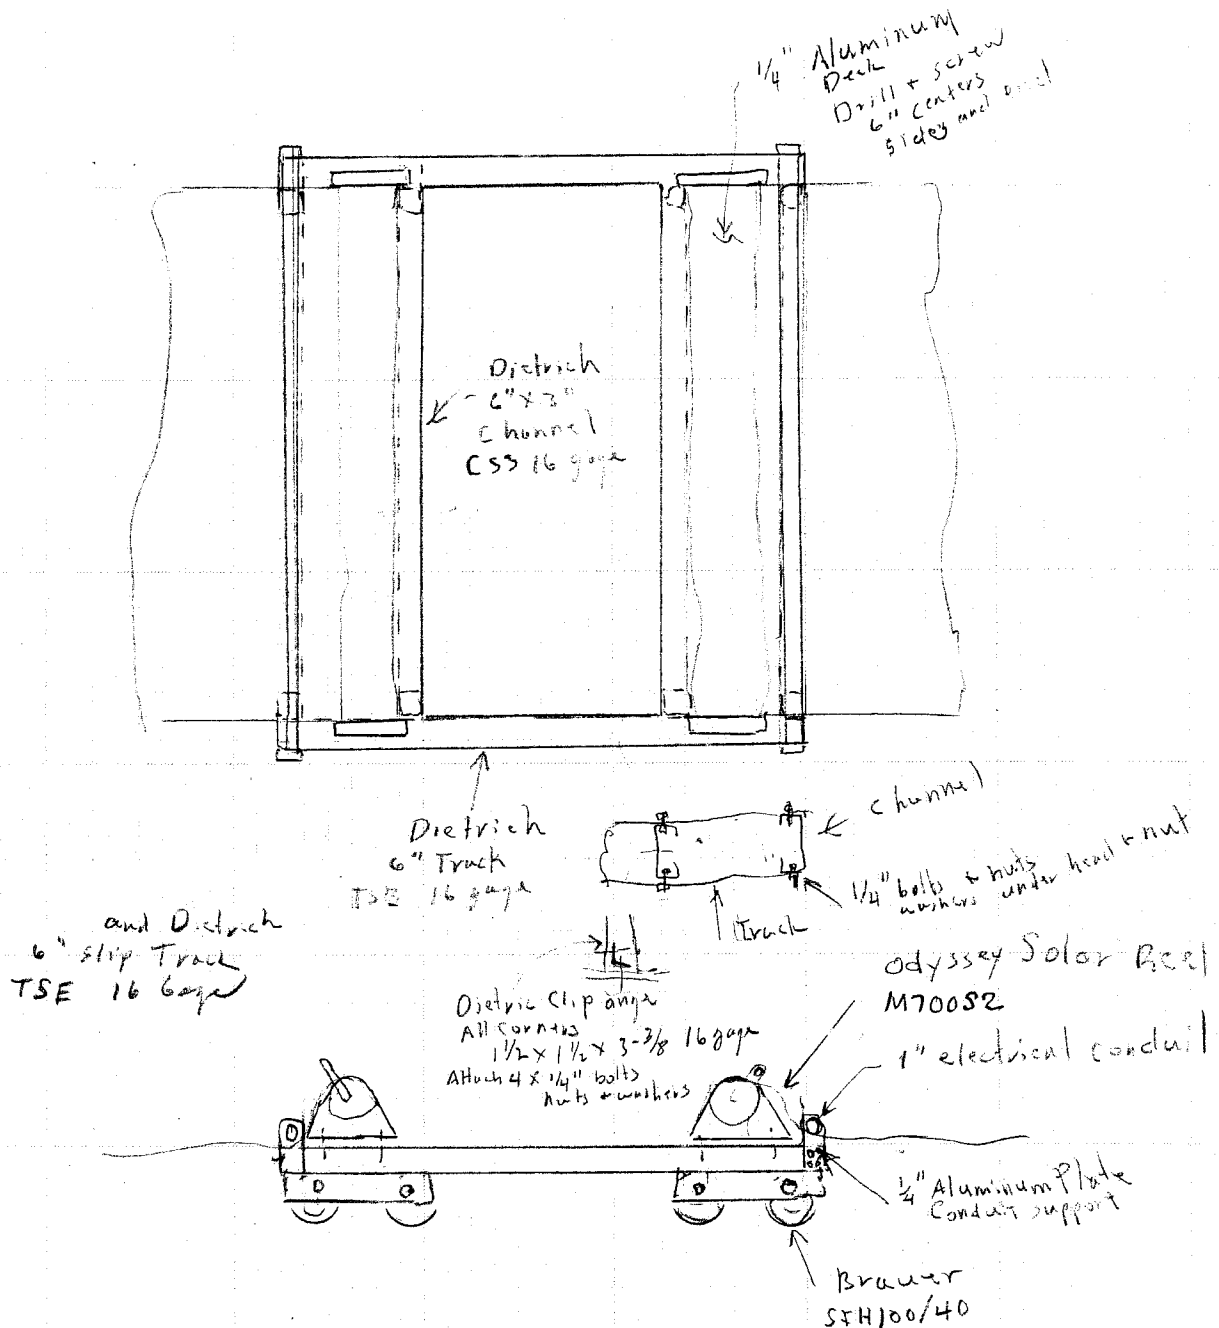 1/4" Aluminum
Deck
Drill + screw
6" centers
sides and
Dietrich
6" x 3"
Channel
CSS 16 gage
Dietrich
6" Track
TSE 16 gage
and Dietrich
6" slip Track
TSE 16 Gage
Channel
1/4" bolts + nuts
washers under head + nut
Track
Dietric Clip angle
All Corners
1 1/2 x 1 1/2 x 3-3/8 16 gage
Attach 4 x 1/4" bolts
nuts + washers
Odyssey Solar Reel
M700S2
1" electrical conduit
1/4" Aluminum Plate
Conduit support
Brauer
SFH100/40